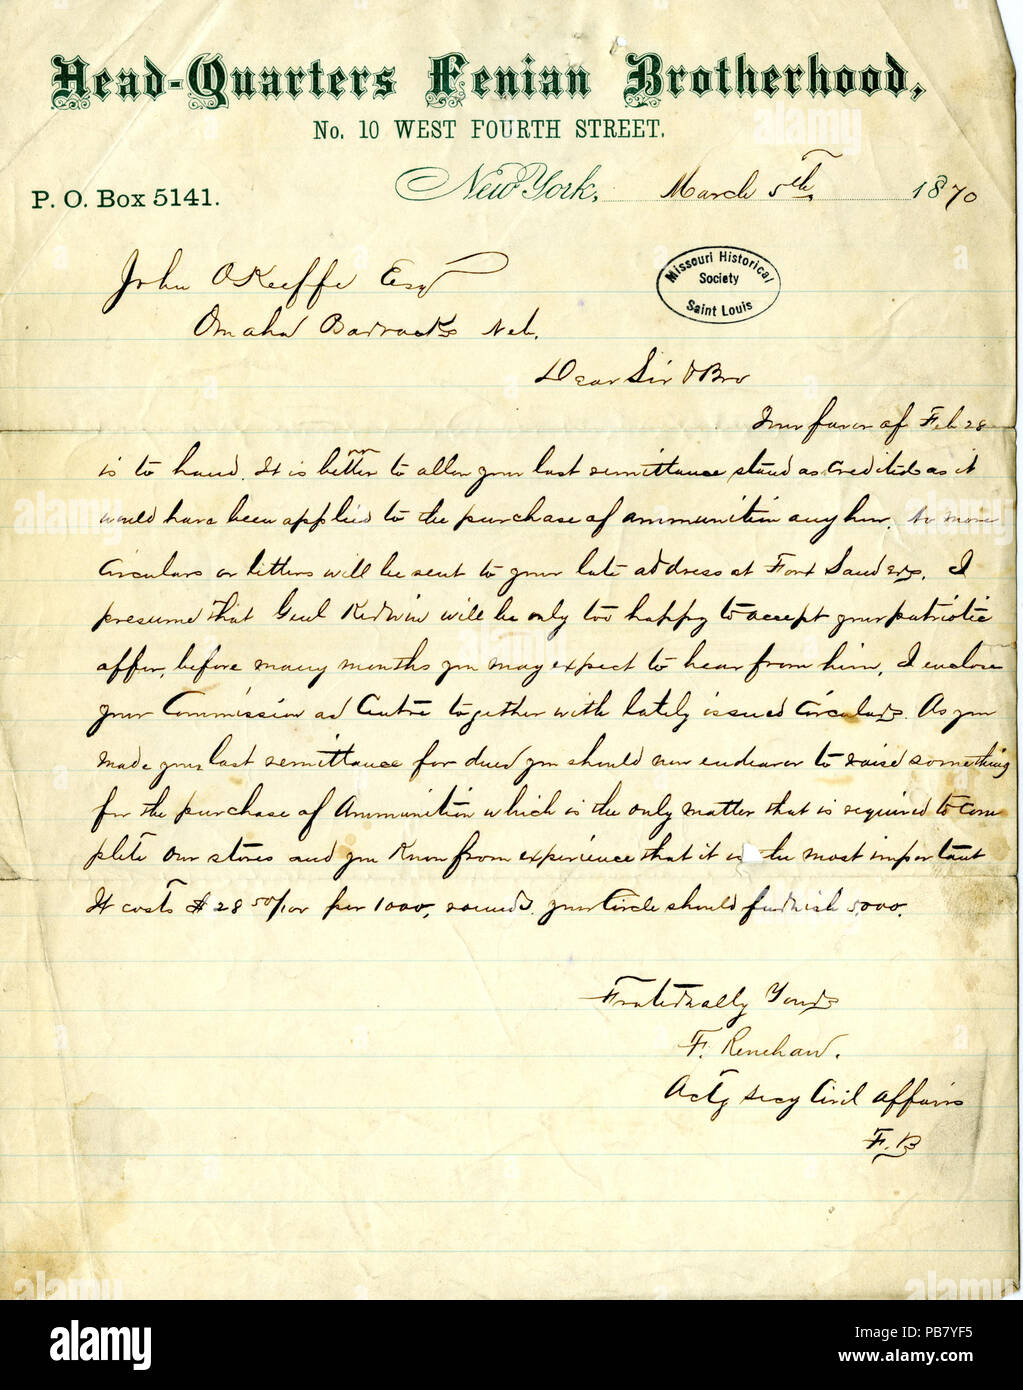 Head-Quarters Fenian Brotherhood,
No. 10 WEST FOURTH STREET.
P. O. Box 5141.
New York, March 5th, 1870
Missouri Historical
Society
Saint Louis
John OKeeffe Esq
Omaha Barracks Neb.
Dear Sir & Bro
Your favor of Feb 28
is to hand. It is better to allow your last remittance stand as credited as it
would have been applied to the purchase of ammunition any how. No more
circulars or letters will be sent to your late address at Fort Sanders. I
presume that Genl Kerwin will be only too happy to accept your patriotic
offer, before many months you may expect to hear from him, I enclose
your Commission as Centre together with lately issued circulars. As you
made your last remittance for dues you should now endeavor to raise something
for the purchase of Ammunition which is the only matter that is required to com
plete our stores and you know from experience that it is the most important
It costs $28 50/100 per 1000, rounds. your Circle should furnish 5,000.
Fraternally Yours
F. Renehan.
Actg Secy Civil Affairs
F. B
alamy
alamy
PB7YF5
www.alamy.com